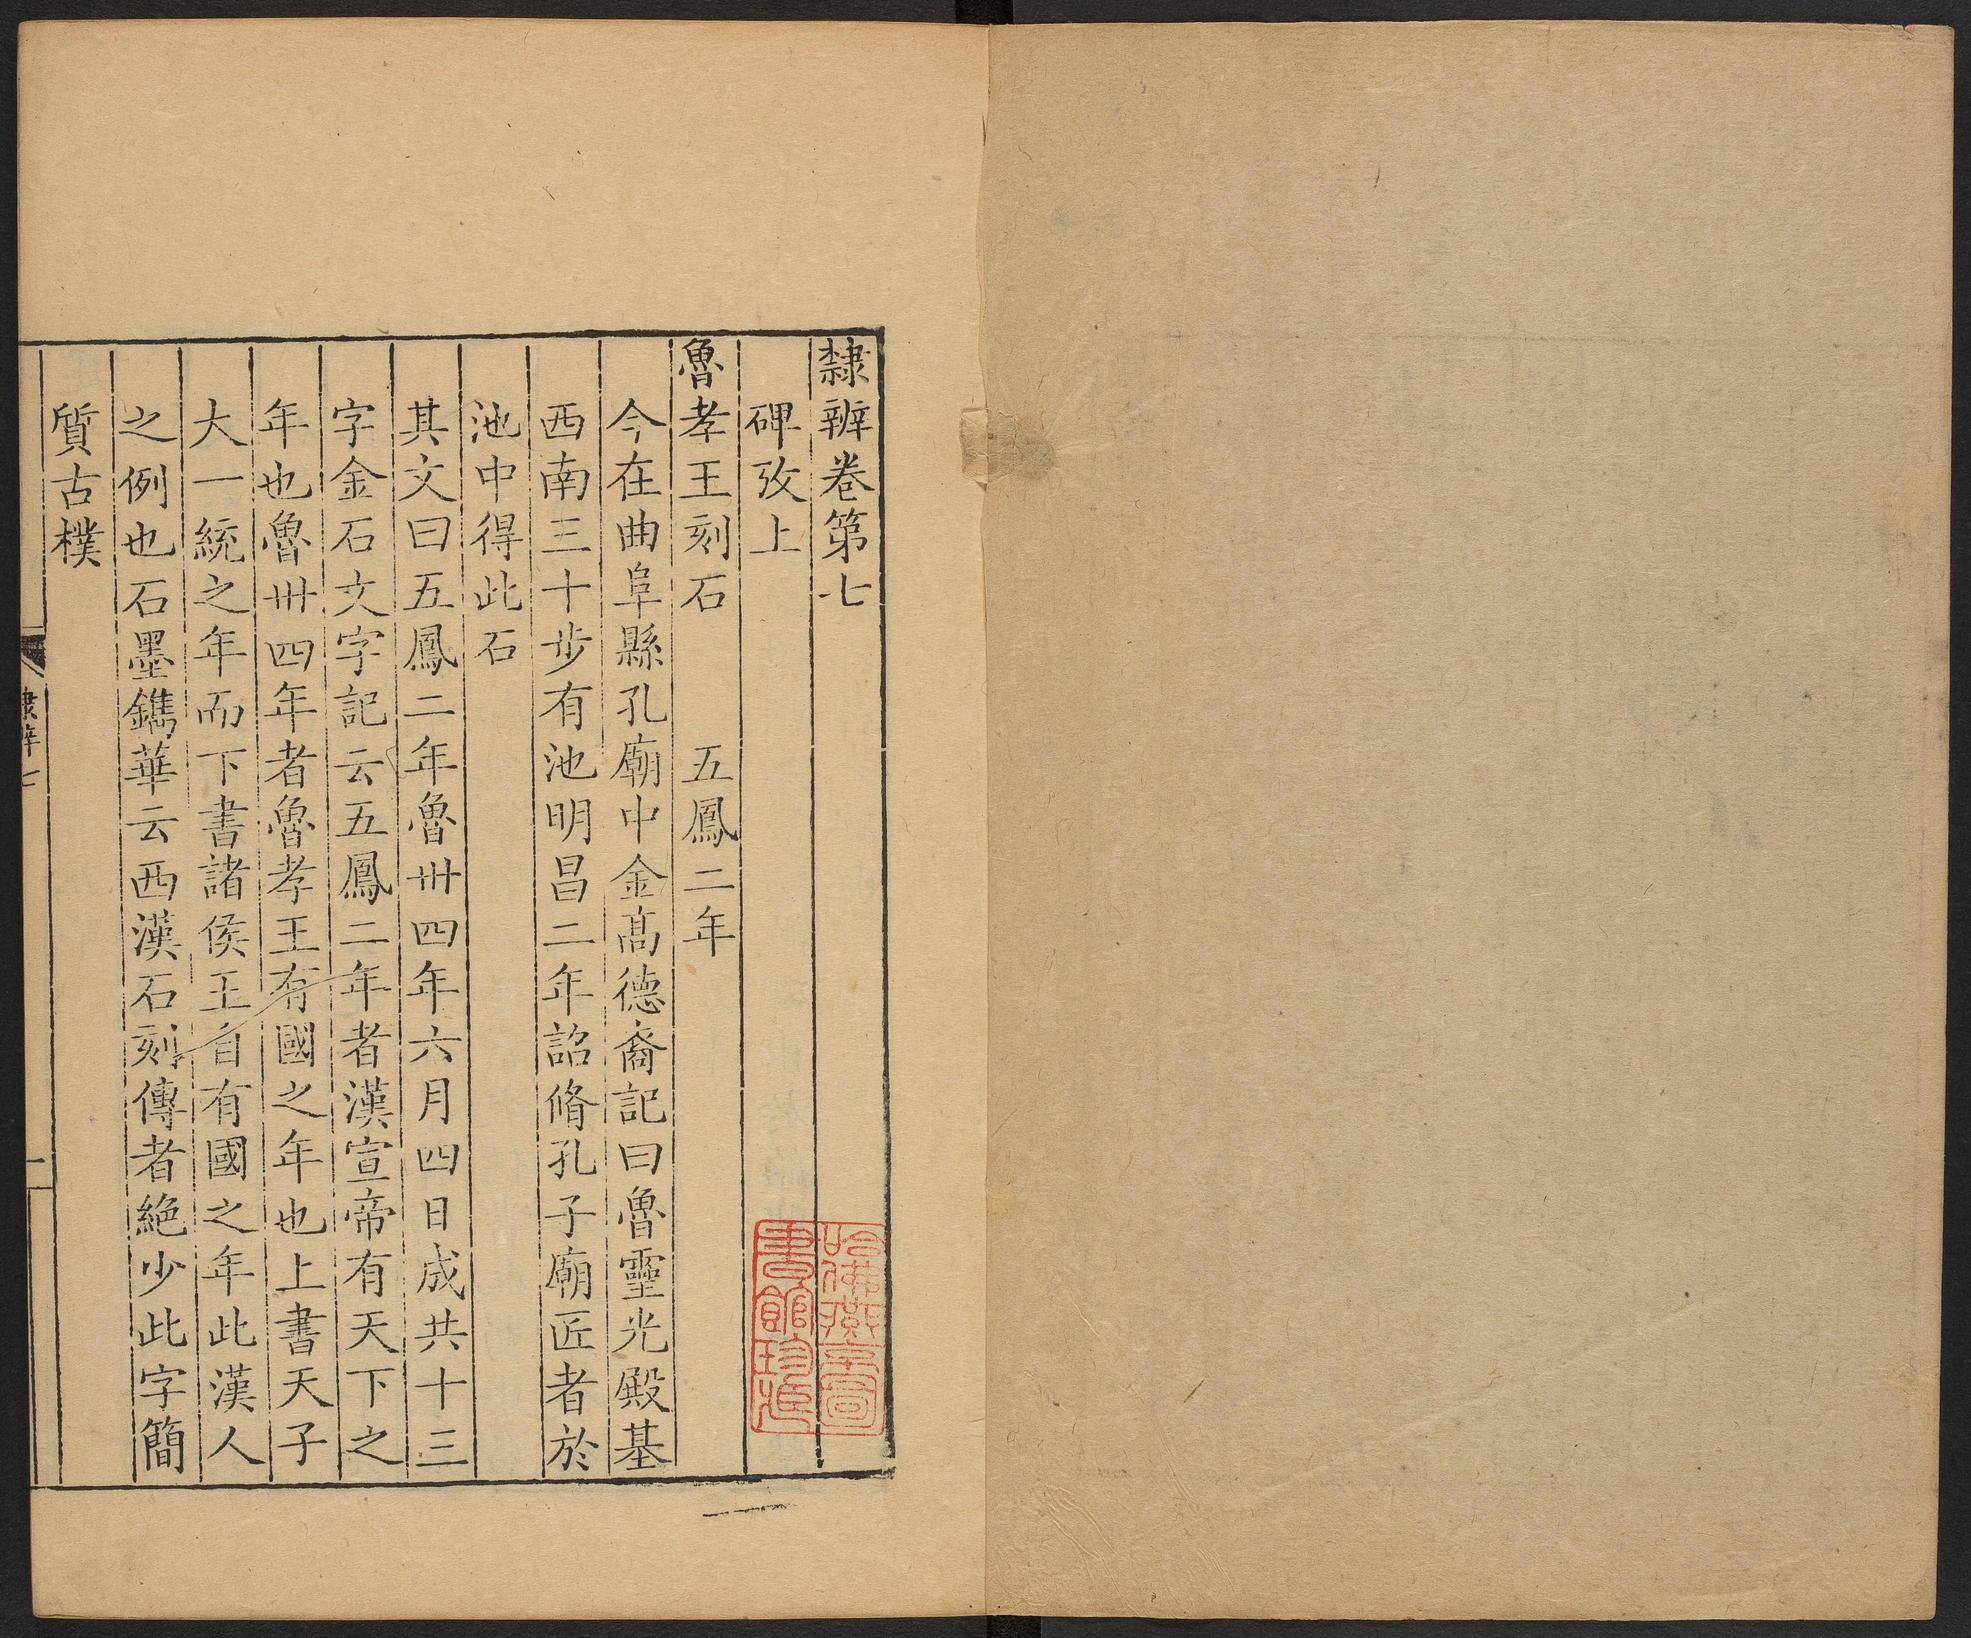 隸辨卷第七
碑攷上
魯孝王刻石 五鳳二年
今在曲阜縣孔廟中金髙德裔記曰魯靈光殿基
西南三十步有池明昌二年詔脩孔子廟匠者於
池中得此石
其文曰五鳳二年魯卅四年六月四日成共十三
字金石文字記云五鳳二年者漢宣帝有天下之
年也魯卅四年者魯孝王有國之年也上書天子
大一統之年而下書諸侯王自有國之年此漢人
之例也石墨鐫華云西漢石刻傳者絕少此字簡
質古樸
隸辨七
一
哈佛燕京圖
書館珍藏